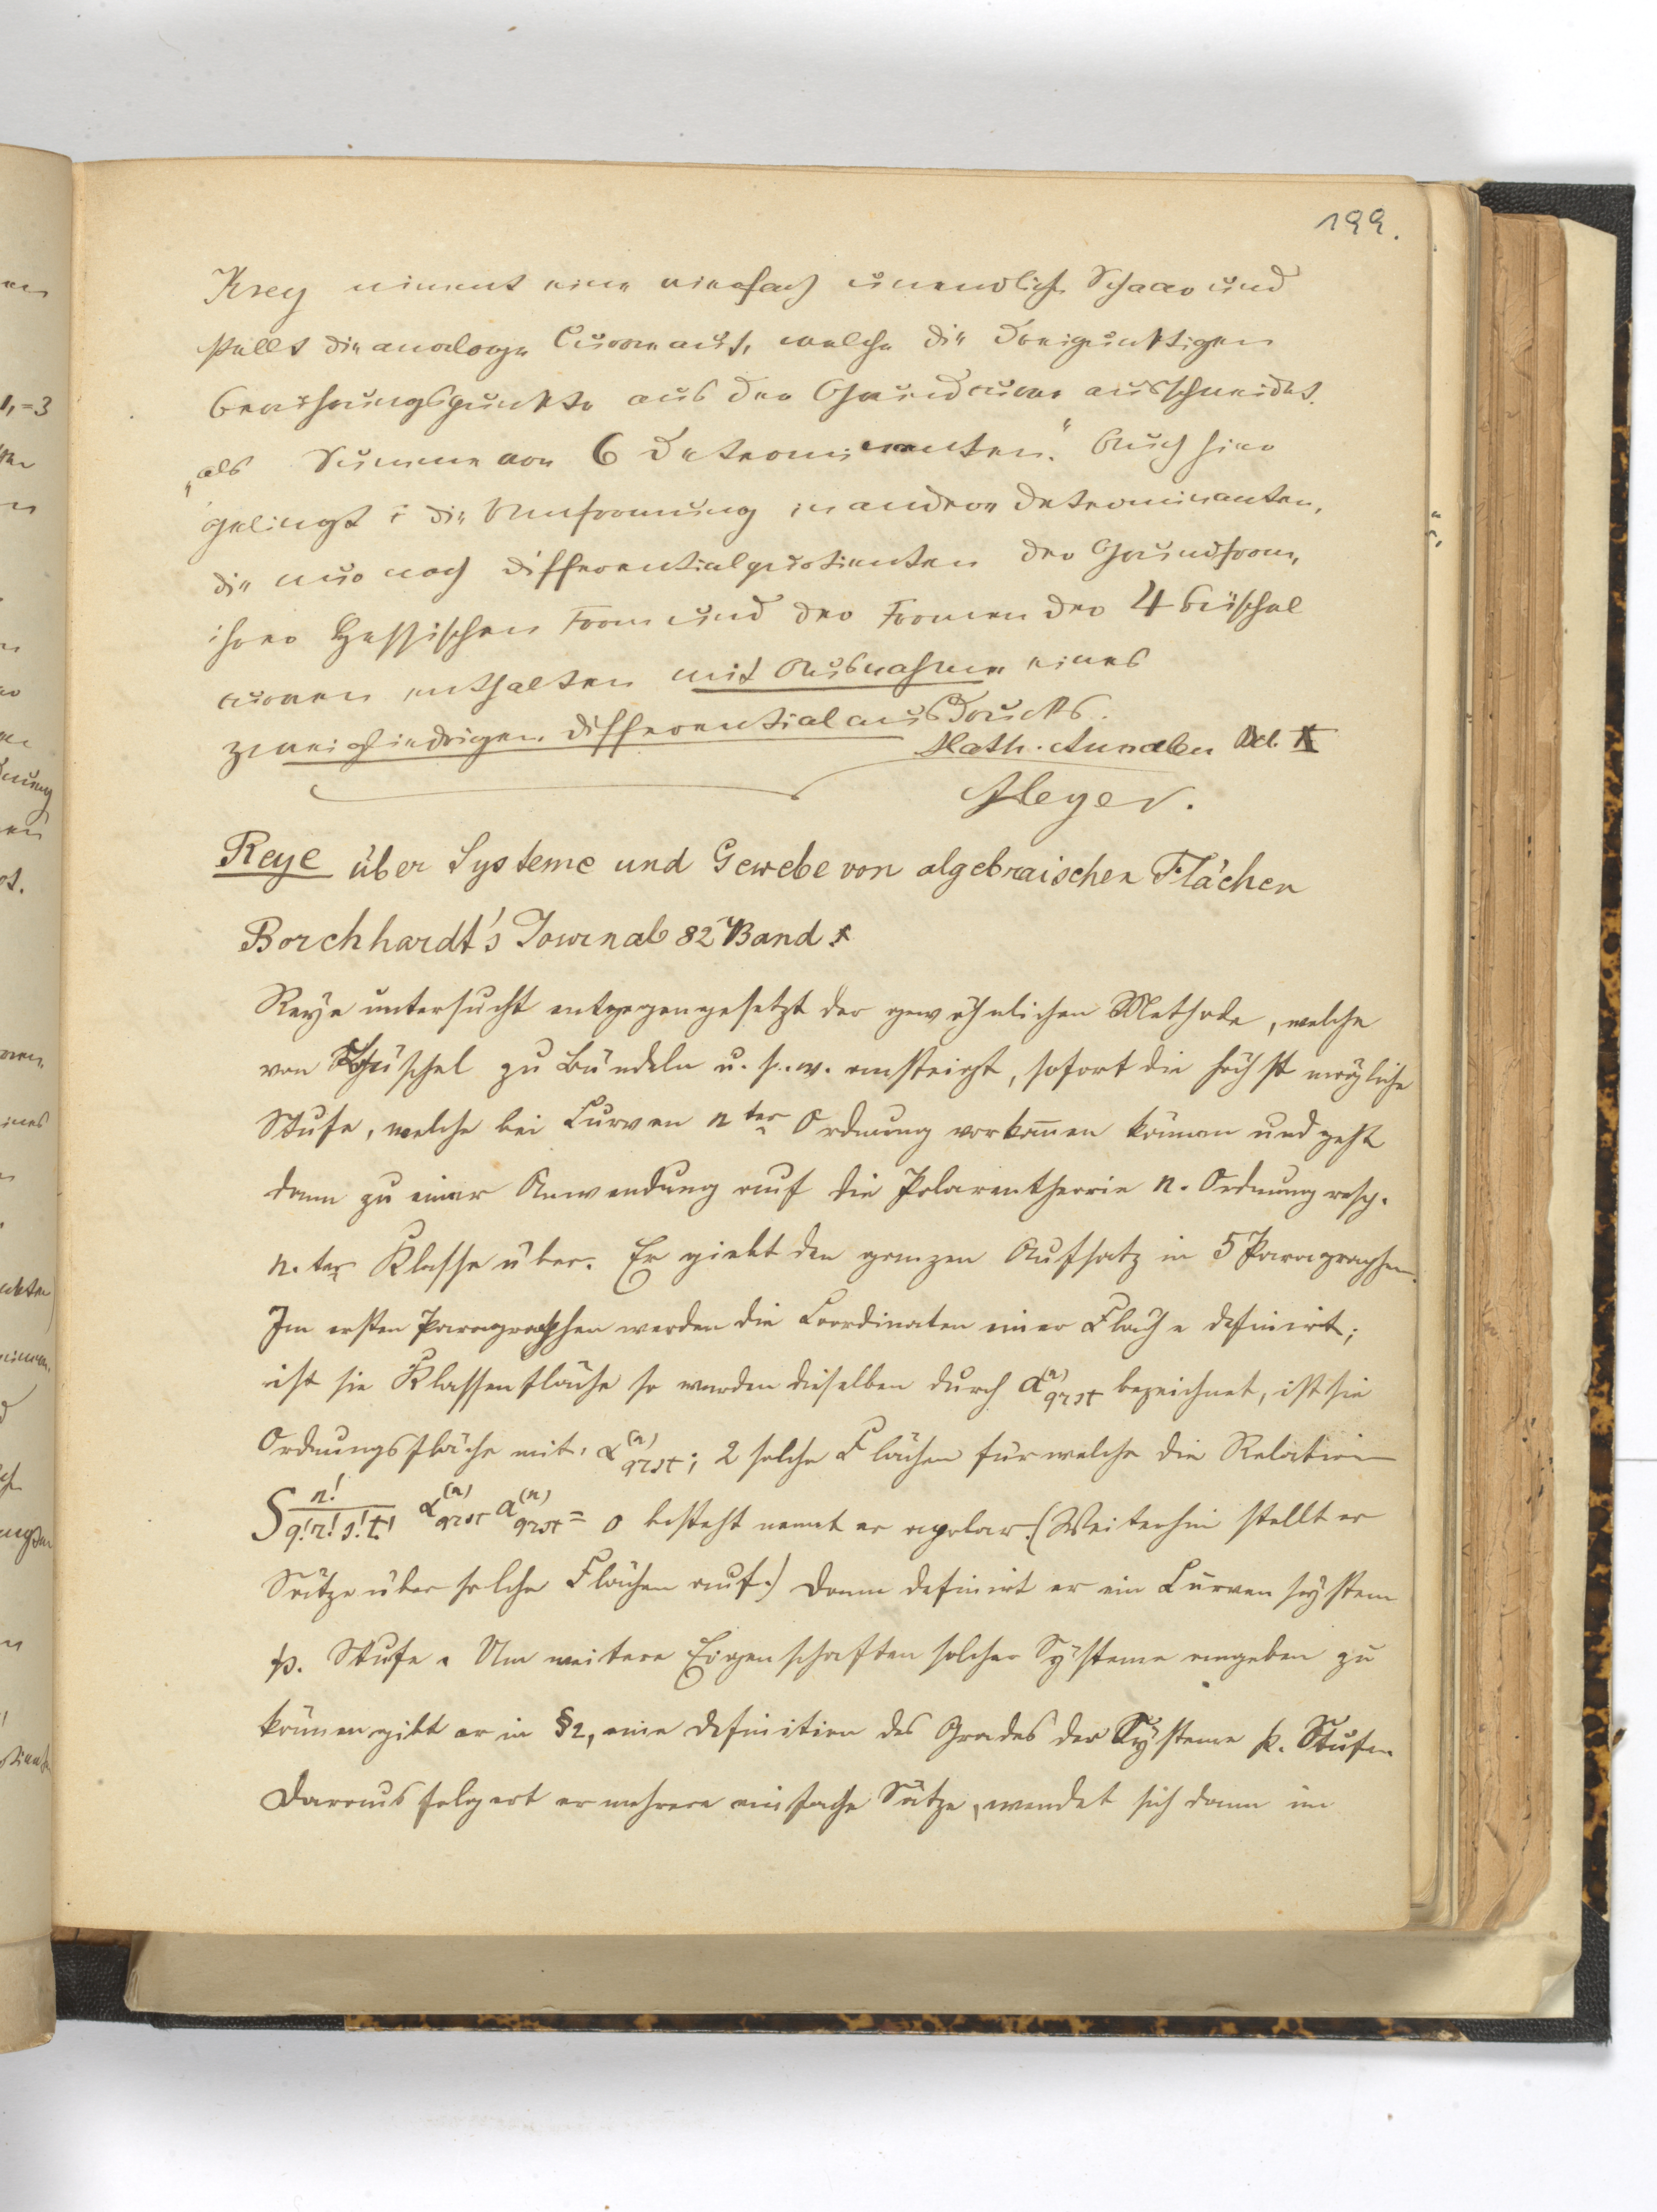 199.
Krey nimmt eine vierfach unendliche Schaar und
stellt die analoge Curve auf, welche die dreipunktigen
Berührungspunkte aus der Grundcurve ausschneidet.
„als Summe von 6 Determinanten." Auch hier
gelingt die Umformung in andere Determinanten,
die nur noch Differentialquotienten der Grundform,
ihrer Hessischen Form und der Formen der 4 Büschel
curven enthalten mit Ausnahme eines
zweigliedrigen Differentialausdrucks.
Math. Annalen Bd. X
Meyer.
Reye über Systeme und Gewebe von algebraischen Flächen
Borchhardt's Journal 82 Band
Reye untersucht entgegengesetzt der gewöhnlichen Methode, welche
von Büschel zu Bündeln u. s. w. ansteigt, sofort die höchst mögliche
Stufe, welche bei Curven n ter Ordnung vorkom̅en können und geht
dann zu einer Anwendung auf die Polarentheorie n. Ordnung resp.
n. ter Klasse über. Er giebt den ganzen Aufsatz in 5 Paragraphen.
Im ersten Paragraphen werden die Coordinaten einer Fläche definirt;
ist sie Klassenfläche so werden dieselben durch a^(n)_qrst bezeichnet, ist sie
Ordnungsfläche mit α^(n)_qrst; 2 solche Flächen für welche die Relation
S n!/q!r!s!t! α^(n)_qrst a^(n)_qrst = 0 besteht nennt er apolar. (Weiterhin stellt er
Sätze über solche Flächen auf.) Dann definirt er ein Curvensystem
p. Stufe. Um weitere Eigenschaften solcher Systeme angeben zu
können gibt er in §2, eine Definition des Grades der Systeme p. Stufe.
Daraus folgert er mehrere einfache Sätze, wendet sich dann im